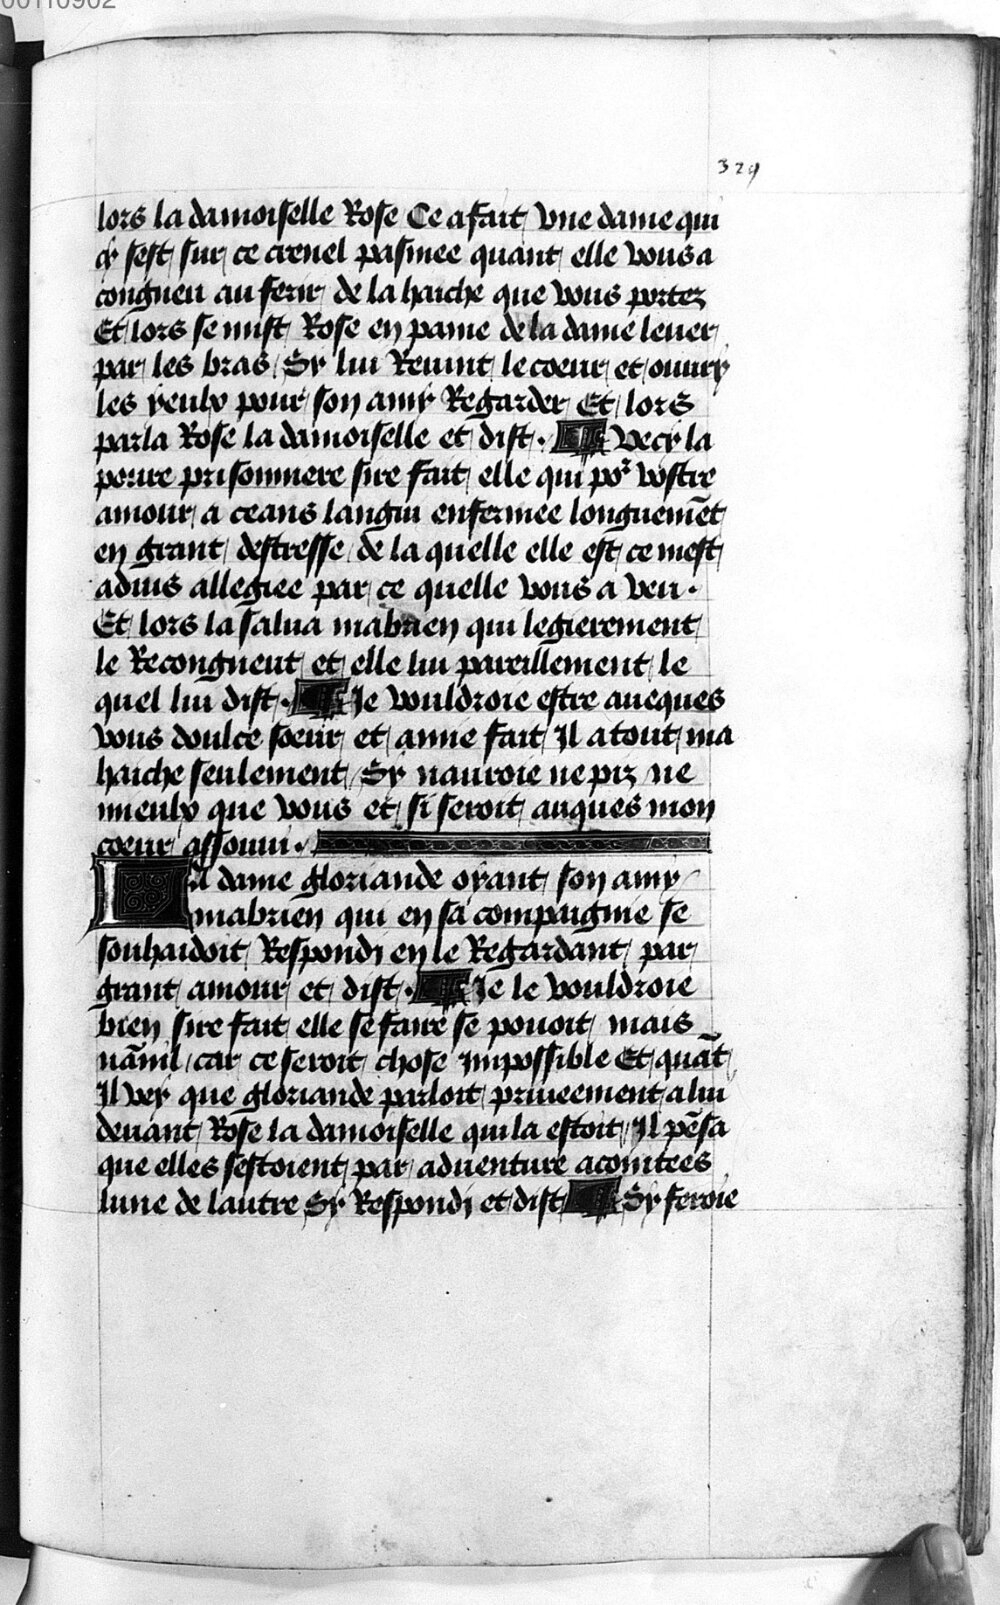 00110902
329
lors la damoiselle Rose Ce a fait vne dame qui
cy sest sur ce crenel pasmee quant elle vous a
congneu au ferir de la hache que vous portez
Et lors se mist Rose en paine de la dame leuer
par les bras Sy lui Reuint le coeur et ouury
les yeulx pour son amy Regarder Et lors
parla Rose la damoiselle et dist · ¶ Vecy la
poure prisonniere sire fait elle qui poʳ vostre
amour a ceans langui enfermee longuemēt
en grant destresse de la quelle elle est ce mest
aduis allegiee par ce quelle vous a veu ·
Et lors la salua mabrien qui legierement
le Recongneut et elle lui pareillement le
quel lui dist · ¶ Je vouldroie estre auecques
vous doulce soeur et amie fait Il a tout ma
haiche seulement Sy nauroie ne piz ne
mieulx que vous et si seroit auques mon
coeur assouui ·
La dame gloriande oyant son amy
mabrien qui en sa compaignie se
souhaidoit Respondi en le Regardant par
grant amour et dist · ¶ Je le vouldroie
bien sire fait elle se faire se pouoit mais
nānil car ce seroit chose Impossible Et quāt
Il vey que gloriande parloit priueement a lui
deuant Rose la damoiselle qui la estoit Il pēsa
que elles sestoient par aduenture acointees
lune de lautre Sy Respondi et dist ¶ Sy feroie